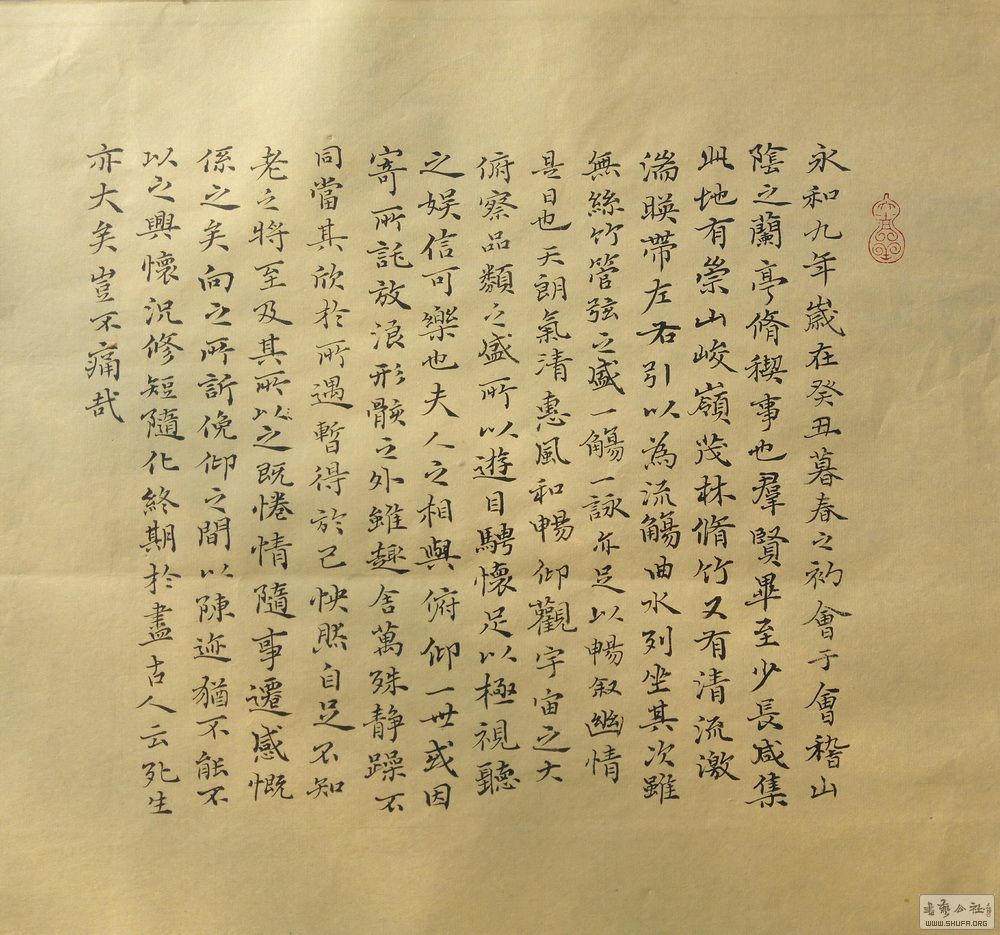 永和九年歲在癸丑暮春之初會于會稽山
陰之蘭亭脩稧事也羣賢畢至少長咸集
此地有崇山峻嶺茂林脩竹又有清流激
湍暎帶左右引以為流觴曲水列坐其次雖
無絲竹管弦之盛一觴一詠亦足以暢叙幽情
是日也天朗氣清惠風和暢仰觀宇宙之大
俯察品類之盛所以遊目騁懷足以極視聽
之娛信可樂也夫人之相與俯仰一世或因
寄所託放浪形骸之外雖趣舍萬殊静躁不
同當其欣於所遇暫得於己怏然自足不知
老之將至及其所以之既惓情隨事遷感慨
係之矣向之所訢俛仰之間以陳迹猶不能不
以之興懷況修短隨化終期於盡古人云死生
亦大矣豈不痛哉
書藝公社
WWW.SHUFA.ORG